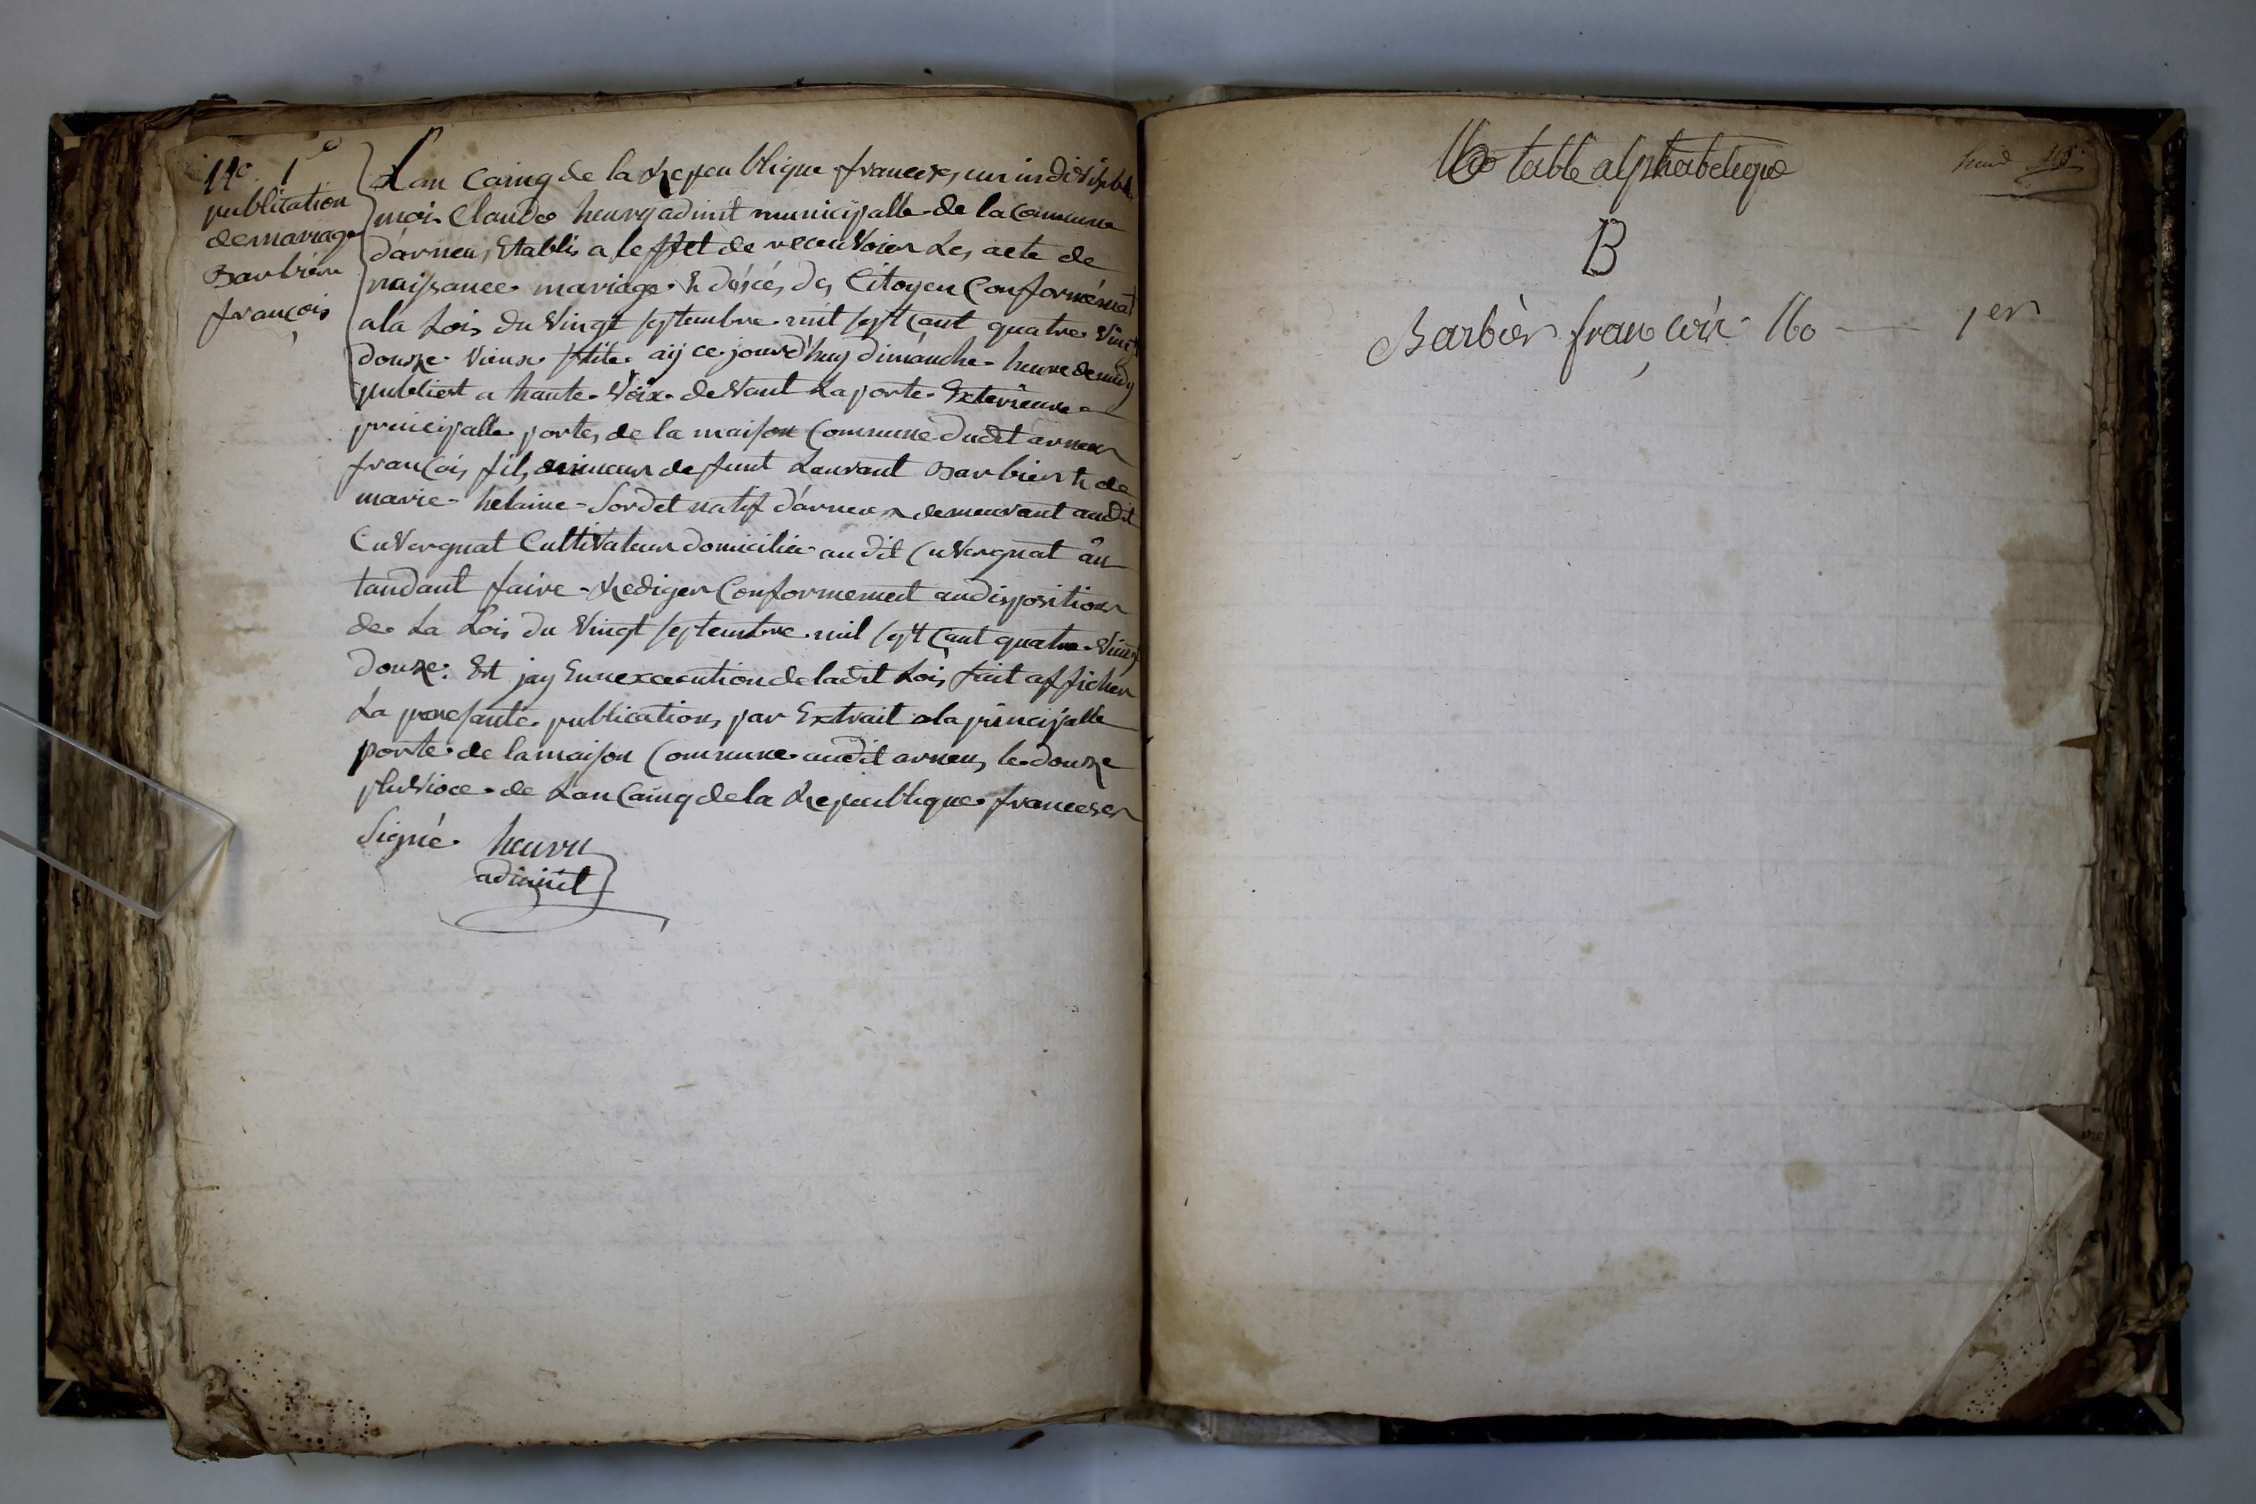 No. 1e
publication
de mariage
Barbiere
françois
Lan Cainq de la Republique francese, un indivisible
moi Claude heury adinit municipalle de la Commune
d'arneu, Etablis a leffet de recuvoier Les acte de
naissance mariage & désés des Citoyen Conformémat
a la Lois du Vingt septembre mil sept cant quatre Vingt
douze Vieux stile aÿ ce jourd'huy dimanche heure de midy
publiest a haute Voix devant La porte Exterieure
principalle portes de la maison Commune dudit arneu
françois fils mineur defunt Laurant Barbier & de
marie helaine Sordet natif d'arneu demeurant audit
Cuvergnat Cultivateur domicilié audit Cuvergnat ân
tandant faire Rediger Conformement au disposition
de La Lois du Vingt septembre mil sept cant quatre Vingt
douze. Est jay Enn excecution de ladit Lois fait afficher
La presante publication, par Extrait a la principalle
porte de la maison Commune audit arneu, le douze
pluviose de Lan Cainq de la Republique francese
Signé heury
adinit
160 table alphabetique
B
Barbier françoir 160 — 1er